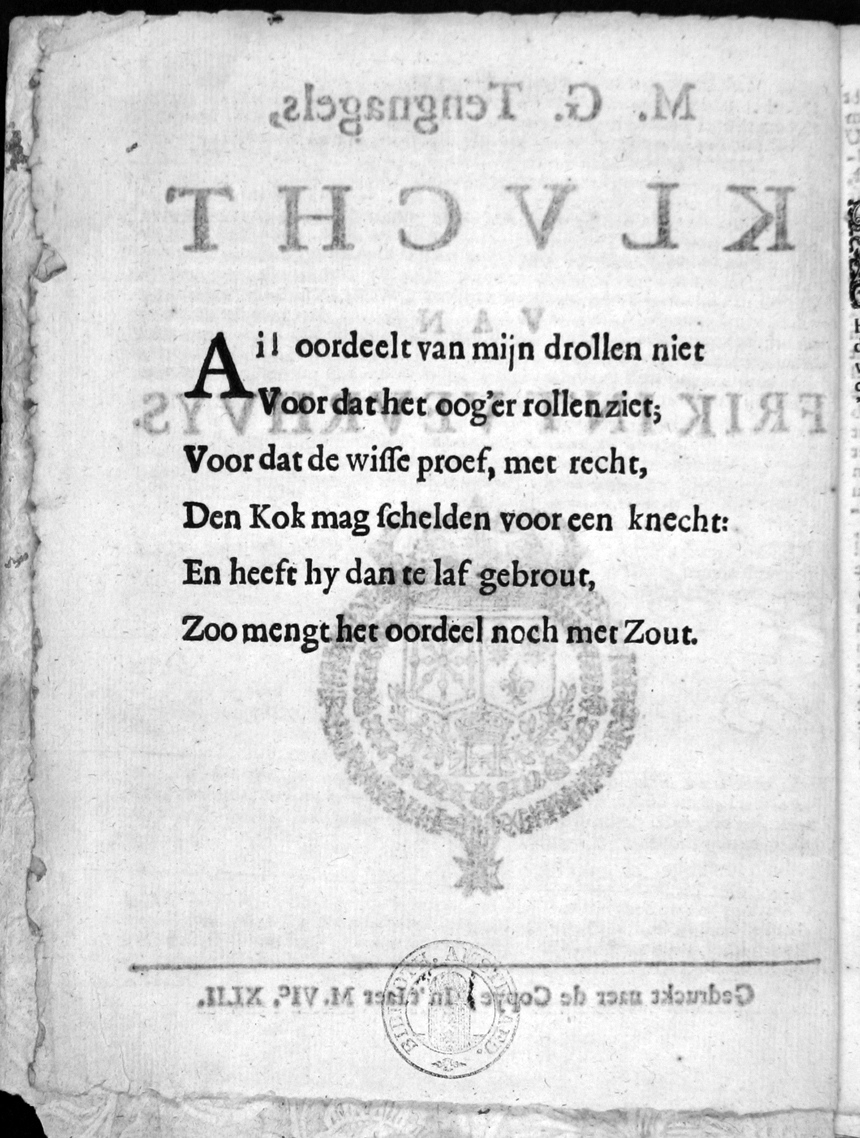 M. G. Tengnagels,
KLVCHT
VAN
FRIK IN'T VEURHUYS.
Ail oordeelt van mijn drollen niet
Voor dat het oog'er rollen ziet;
Voor dat de wiſſe proef, met recht,
Den Kok mag ſchelden voor een knecht:
En heeft hy dan te laf gebrout,
Zoo mengt het oordeel noch met Zout.
Gedruckt naer de Copye In't Iaer M. VIᶜ. XLII.